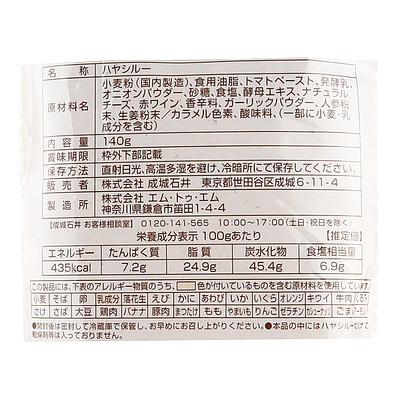 名 称 ハヤシルー
原材料名 小麦粉(国内製造)、食用油脂、トマトペースト、発酵乳、
オニオンパウダー、砂糖、食塩、酵母エキス、ナチュラル
チーズ、赤ワイン、香辛料、ガーリックパウダー、人参粉
末、生姜粉末/カラメル色素、酸味料、(一部に小麦・乳
成分を含む)
内 容 量 140g
賞味期限 枠外下部記載
保存方法 直射日光、高温多湿を避け、冷暗所にて保存してください。
販 売 者 株式会社 成城石井 東京都世田谷区成城6-11-4
製 造 所 株式会社 エム・トゥ・エム
神奈川県鎌倉市笛田1-4-4
【成城石井 お客様相談室】 0120-141-565 10:00〜17:00(土日・祝日を除く)
栄養成分表示 100gあたり 【推定値】
エネルギー たんぱく質 脂 質 炭水化物 食塩相当量
435kcal 7.2g 24.9g 45.4g 6.9g
この製品には、下表のアレルギー物質のうち、 色が付いているものを含む原材料を使用しています。
小麦 そば 卵 乳成分 落花生 えび かに あわび いか いくら オレンジ キウイ 牛肉 くるみ
さけ さば 大豆 鶏肉 バナナ 豚肉 まつたけ もも やまいも りんご ゼラチン カシューナッツ ごま アーモンド
●開封後は密封して冷蔵庫で保管し、お早めにお召し上がりください。 ●本品の中にはハヤシルーだけで
乾燥剤等は入っておりません。